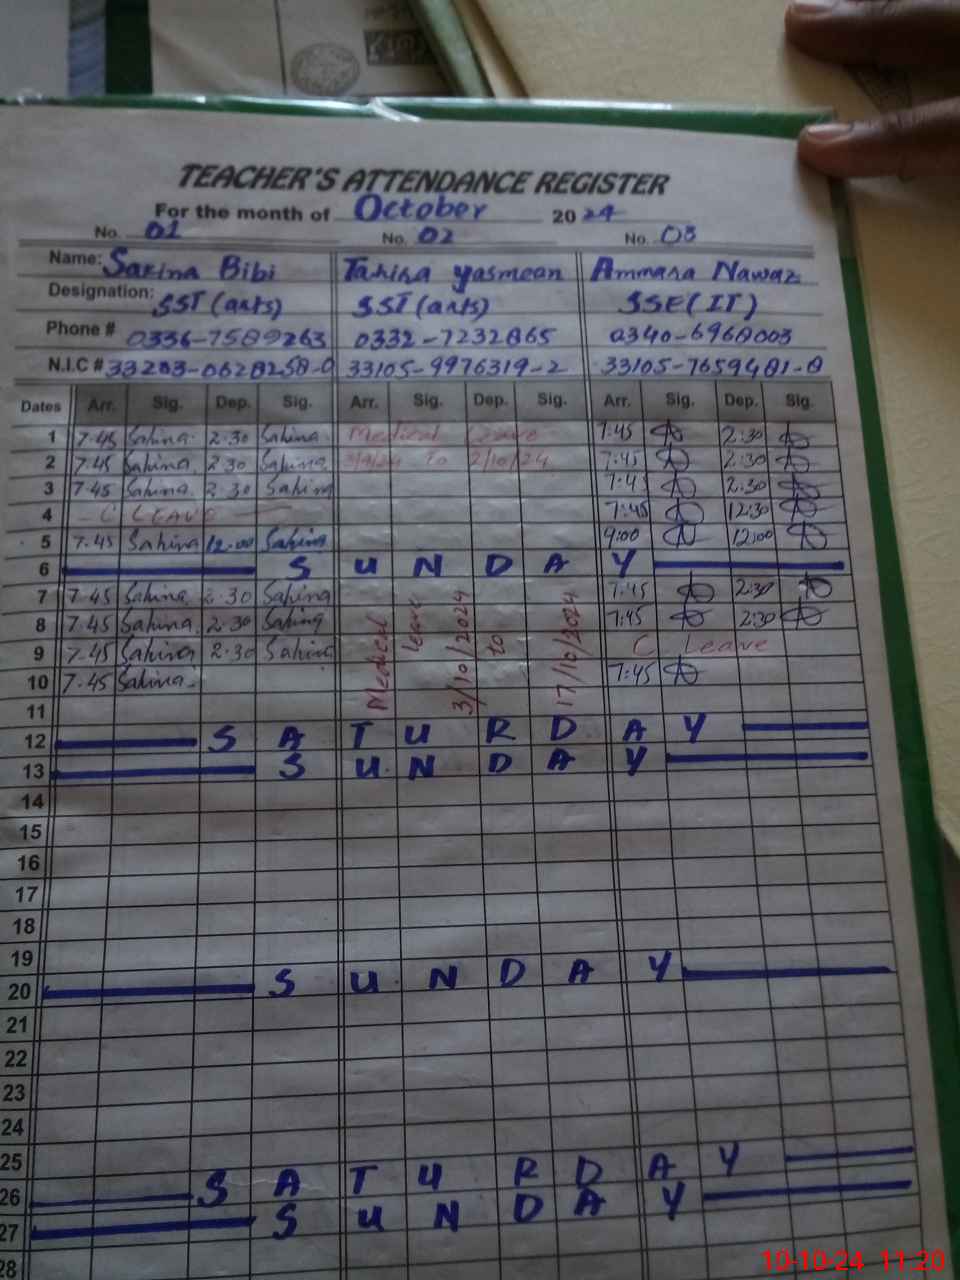 TEACHER'S ATTENDANCE REGISTER
For the month of October 2024
No. 01 No. 02 No. 03
Name: Sakina Bibi Tahira Yasmeen Ammara Nawaz
Designation: SST (arts) SST (arts) SSE (IT)
Phone # 0336-7589263 0332-7232865 0340-6968003
N.I.C # 33203-0628258-0 33105-9976319-2 33105-7659481-8
Dates Arr. Sig. Dep. Sig. Arr. Sig. Dep. Sig. Arr. Sig. Dep. Sig.
1 7.45 Sakina. 2.30 Sakina. Medical Leave 7:45 2:30
2 7.45 Sakina. 2.30 Sakina to 2/10/24 7:45 2:30
3 7.45 Sakina. 2.30 Sakina 7:45 2:30
4 C LEAVE 7:45 12:30
5 7.45 Sakina 12.00 Sakina 9:00 12:00
6 SUNDAY
7 7.45 Sakina. 2.30 Sakina 7:45 2:30
8 7.45 Sakina. 2.30 Sakina 7:45 2:30
9 7.45 Sakina 2.30 Sakina C Leave
10 7.45 Sakina. 7:45
Medical leave 3/10/2024 to 17/10/2024
11
12 SATURDAY
13 SUNDAY
14
15
16
17
18
19
20 SUNDAY
21
22
23
24
25
26 SATURDAY
27 SUNDAY
28
10-10-24 11:20